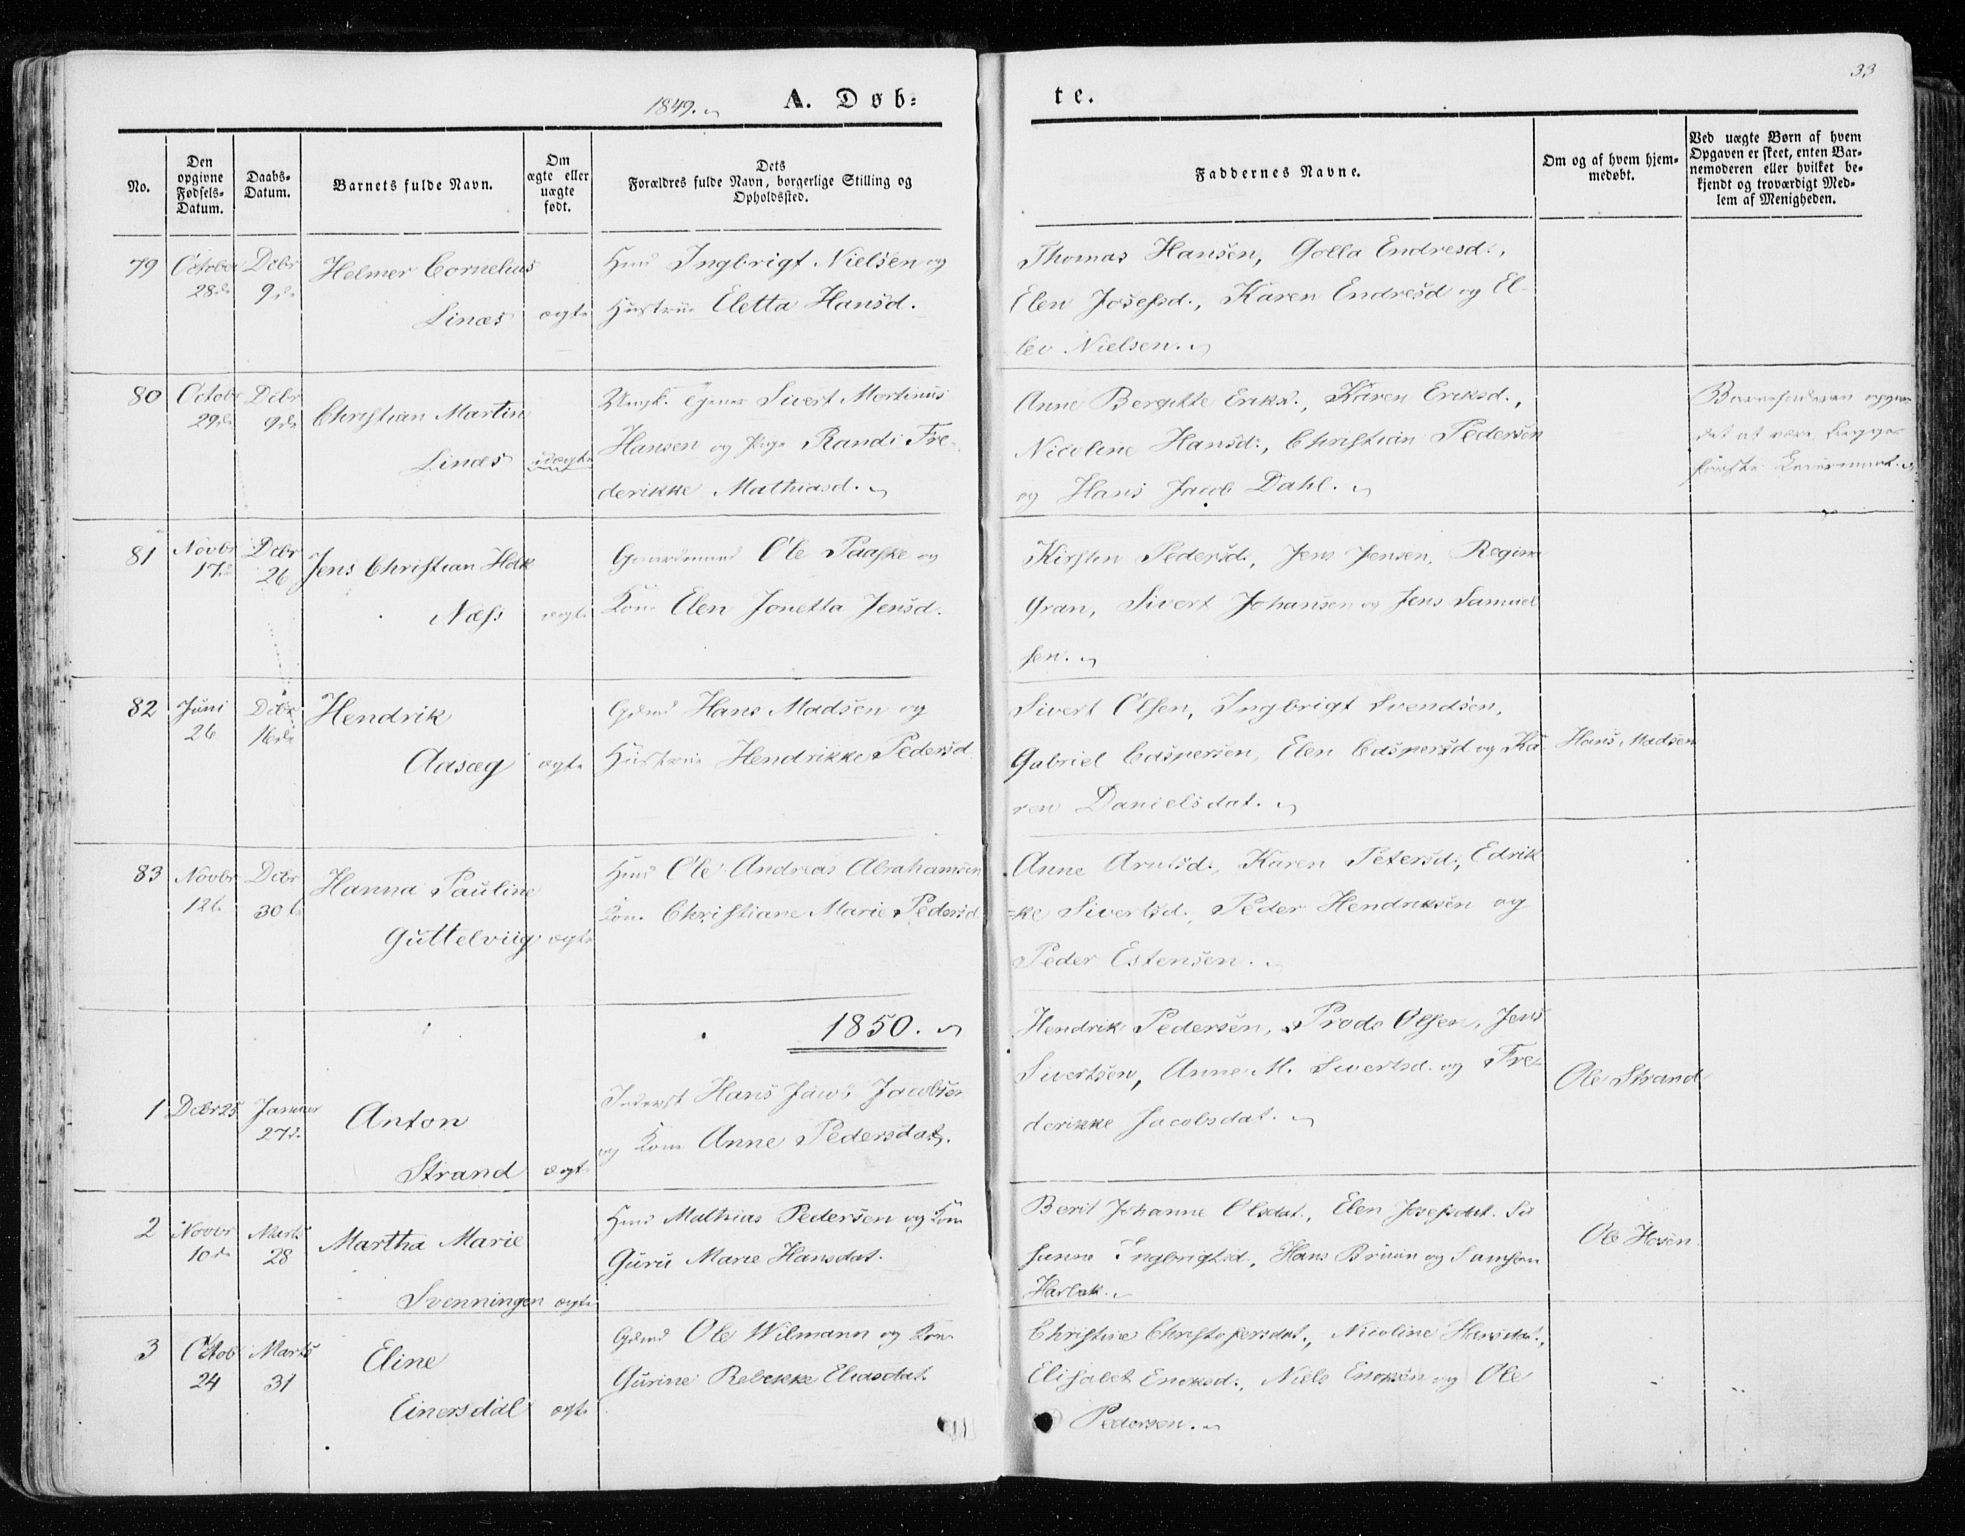 33
1849.
A. Døb-
te.
No.
Den opgivne Fødsels-Datum.
Daabs-Datum.
Barnets fulde Navn.
Om ægte eller uægte født.
Dets Forældres fulde Navn, borgerlige Stilling og Opholdssted.
Faddernes Navne.
Om og af hvem hjem-medøbt.
Ved uægte Børn af hvem Opgaven er skeet, enten Bar-nemoderen eller hvilket be-kjendt og troværdigt Med-lem af Menigheden.
79 October Debr Helmer Cornelius
28de 9de
Linæs ægte
Ingbrigt Nielsen og
Hustrue Eletta Hansd.
Thomas Hansen, Golla Endresd.,
Elen Josefsd., Karen Endresd og El-
lev Nielsen.
80 Octobr Debr
29de 9de Christian Martin
Linæs uægte
Ungk. Sivert Mortinus
Hansen og Pige Randi Fre-
derikke Mathiasd.
Anne Bergitte Eriksd., Karen Eriksd.,
Nicoline Hansd., Christian Pedersen
og Hans Jacob Dahl.
Barnefaderen
det at være
81 Novbr Debr
17de 26 Jens Christian
Næss ægte
Gaardmand Ole Paaske og
Kone Elen Jonetta Jensd.
Kirsten Pedersd., Jens Jensen, Regine
Gran, Sivert Johansen og Jens Samuel
sen.
82 Juni Debr Hendrik
26 16de
Aasæg ægte
Gdmd Hans Madsen og
Hustrue Hendrikke Pedersd.
Sivert Olsen, Ingbrigt Svendsen,
Gabriel Caspersen, Elen Caspersd og Ka
ren Danielsdat.
Hans Madsen
83 Novbr Debr Hanna Pauline
12te 30te
Guttelviig ægte
Ole Andreas Abrahamsen
Kone Christiane Marie Pedersd
Anne Arntsd., Karen Petersd., Edrik
=ke Sivertsd., Peder Hendriksen og
Peder Estensen.
1850.
1 Debr 25 Januar Anton
27de
Strand ægte
Inderst Hans Jacob Jacobsen
og Kone Anne Pedersdat.
Hendrik Pedersen, Prode Olsen, Jens
Sivertsen, Anne M. Sivertsd. og Fre-
derikke Jacobsdat.
Ole Strand
2 Novbr Marts Martha Marie
10de 28
Svenningen ægte
Mathias Pedersen og Kone
Guru Marie Hansdat.
Berit Johanne Olsdat., Elen Josefsdat. Su
sanne Ingbrigtsd., Hans Bruun og Samson
Harbak.
Ole Hoven
3 Octob Marts Eline
24 31
Einersdal ægte
Gdmd Ole Wilmann og Kone
Gurine Rebekke Eliasdat.
Christine Christofersdat., Nicoline Hansdat.,
Elisabet Enoksd., Niels Enoksen og Ole
Pedersen.